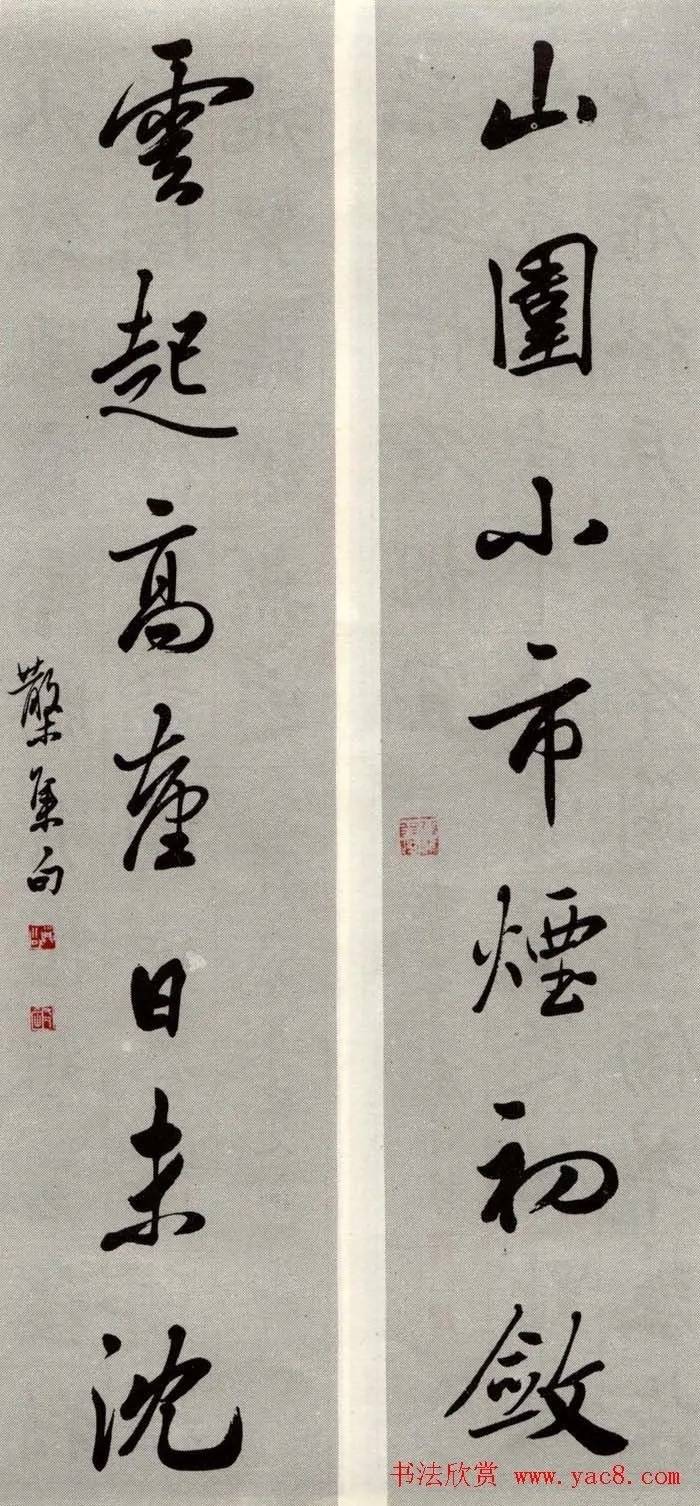 山圍小市煙初斂
雲起高臺日未沈
集句
书法欣赏 www.yac8.com